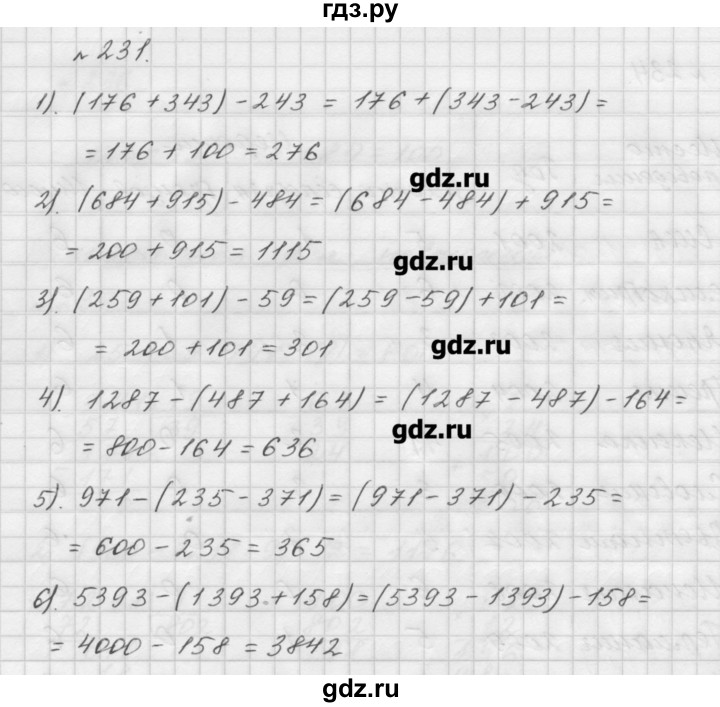 гдз.ру
№ 231.
1). (176 + 343) - 243 = 176 + (343 - 243) =
= 176 + 100 = 276
gdz.ru
2). (684 + 915) - 484 = (684 - 484) + 915 =
= 200 + 915 = 1115
gdz.ru
3). (259 + 101) - 59 = (259 - 59) + 101 =
= 200 + 101 = 301
gdz.ru
4). 1287 - (487 + 164) = (1287 - 487) - 164 =
= 800 - 164 = 636
gdz.ru
5). 971 - (235 - 371) = (971 - 371) - 235 =
= 600 - 235 = 365
6). 5393 - (1393 + 158) = (5393 - 1393) - 158 =
= 4000 - 158 = 3842
gdz.ru